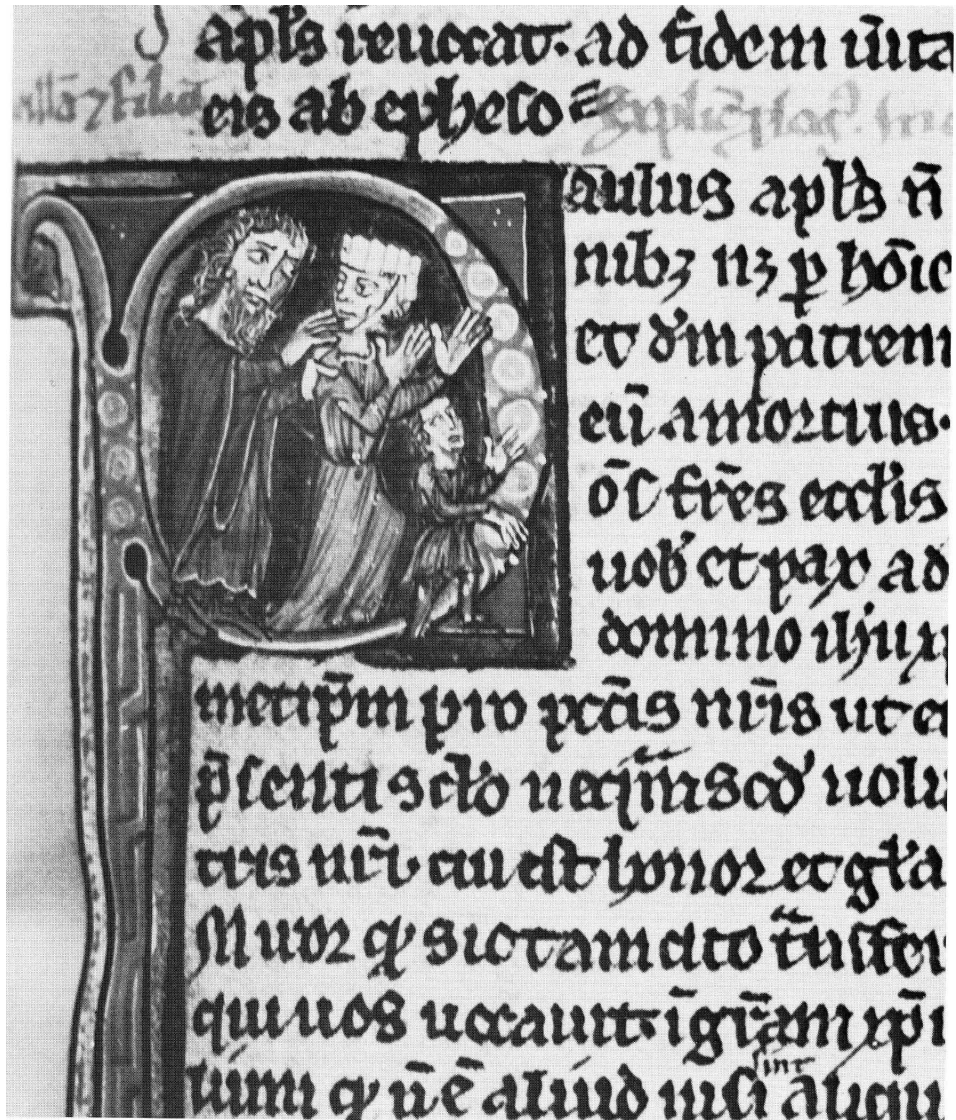 apl̄s reuocat. ad fidem ūita
eis ab epheso
aulus apl̄s n̄
nibꝫ nꝫ ꝑ hōīe
et d̄m patrem
eū amortuis.
ōs fr̄es eccl̄is
uob̾ et pax ad
domino ih̄u
metip̄m pro pcc̄is nr̄is ut e
p̄senti sc̄lo neq̄m scd̾ uolu
tris nr̄i. cui est honor et gl̄a
Miror qꝫ sic tam cito
qui uos uocauit. ī gr̄am xp̄i
q̄ n̄ ē aliud nisi sint aliqui